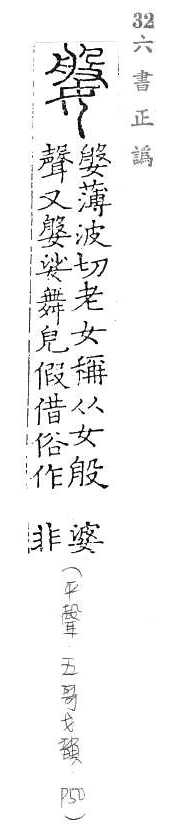 32六書正譌
媻
媻薄波切老女稱从女般
聲又媻娑舞皃假借俗作
婆
非
（平聲．五哥戈韻．P50）